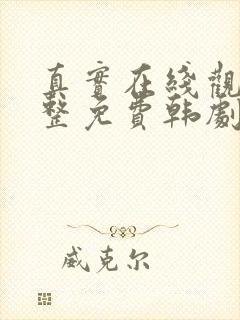 真實在綫觀
整免費韩劇
威克尔